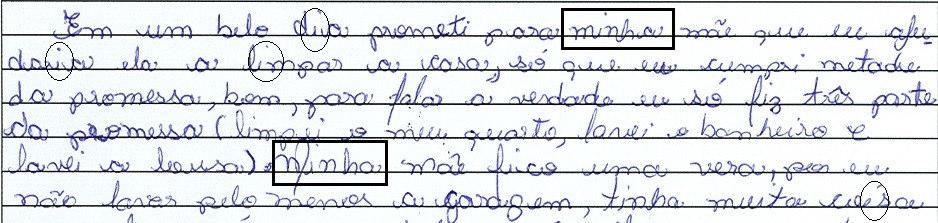 Em um belo dia prometi para minha mãe que eu aju-
daria ela a limpar a casa, só que eu cumpri metade
da promessa, bom, para falar a verdade eu só fiz três parte
da promessa (limpei o meu quarto, lavei o banheiro e
lavei a lousa). Minha mãe fico uma vera, eu
não lavei pelo menos a garagem, tinha muita